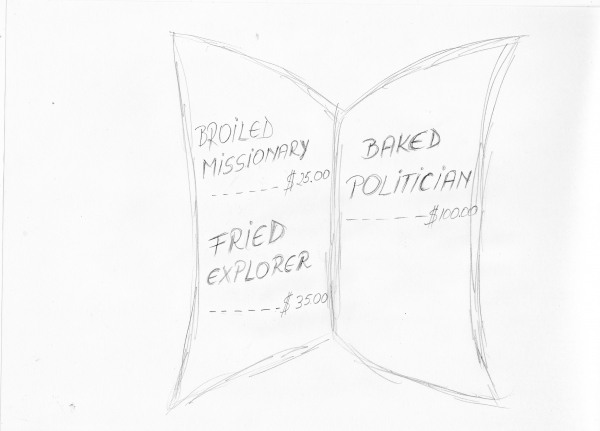 BROILED
MISSIONARY
------- $25.00
FRIED
EXPLORER
------- $35.00
BAKED
POLITICIAN
------- $100.00